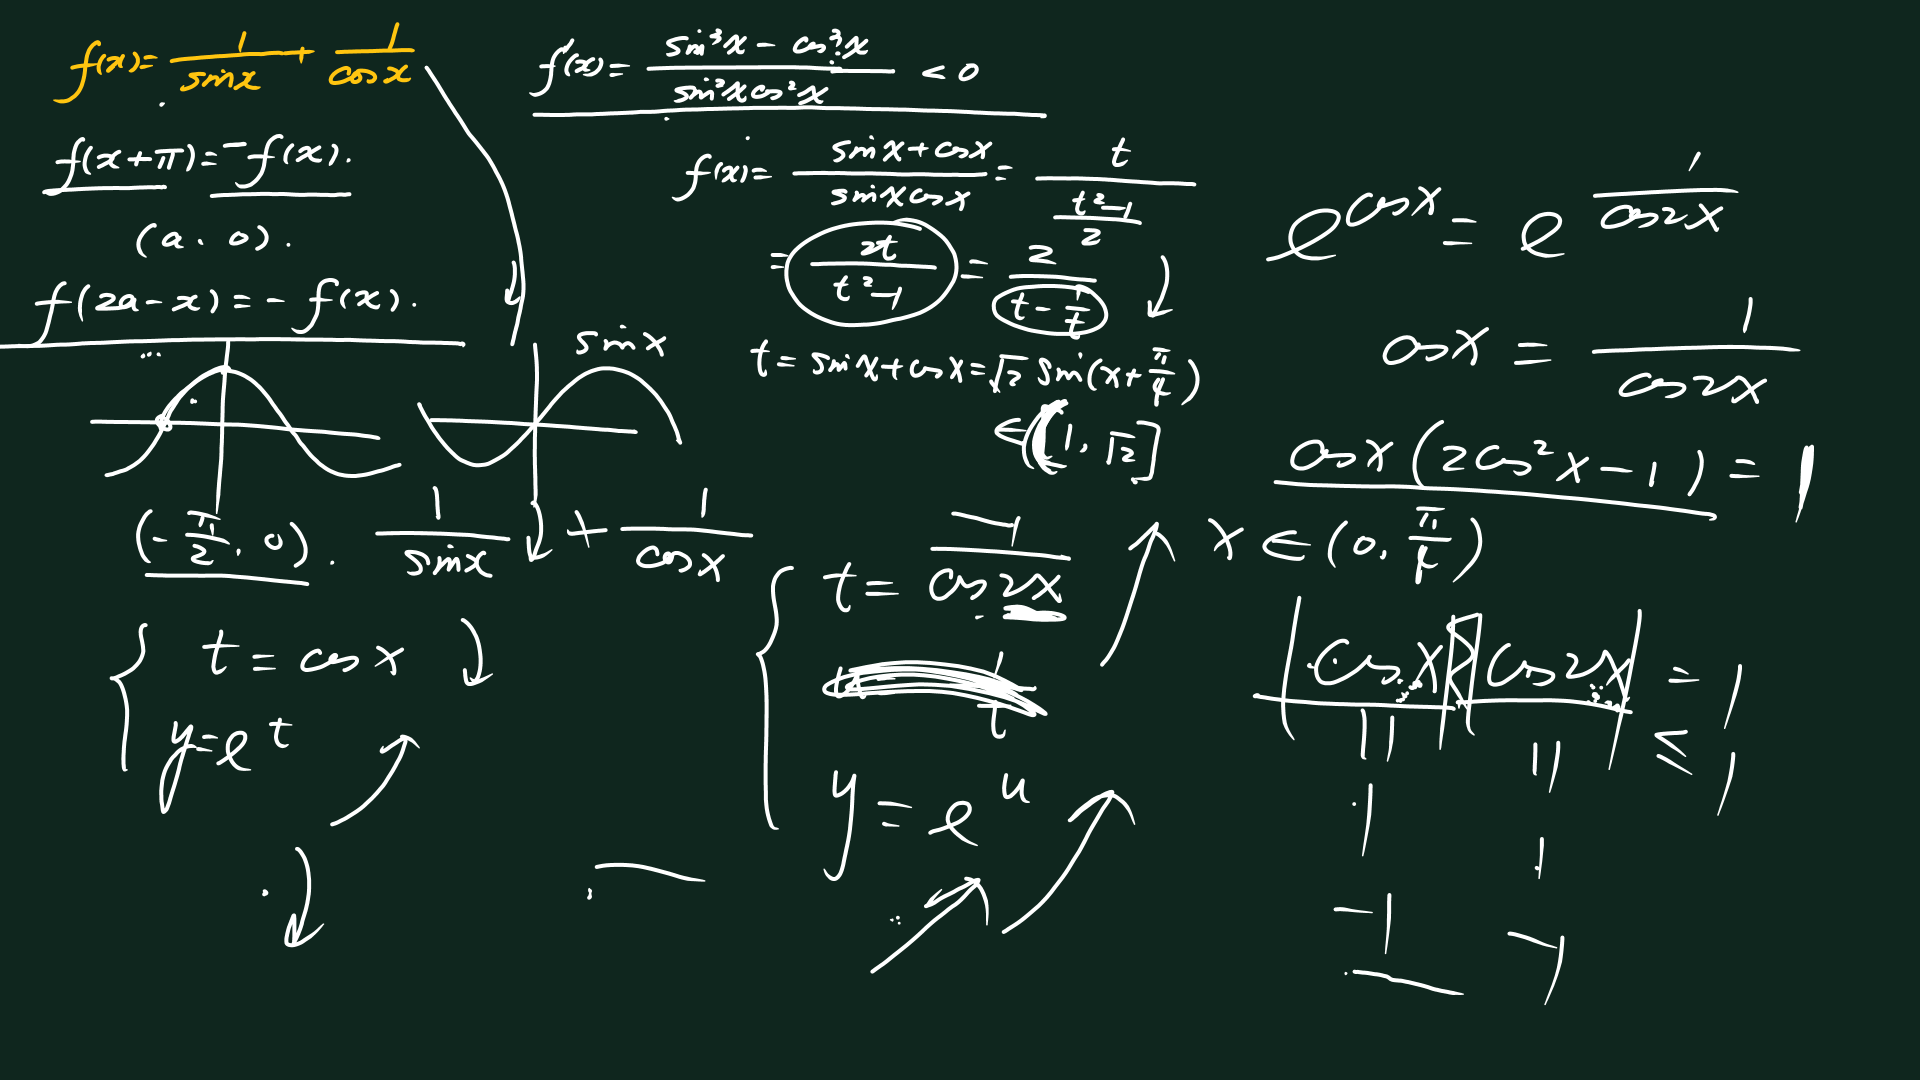 f(x)= 1/sinx + 1/cosx
f(x+π)=-f(x).
(a, 0).
f(2a-x)=-f(x).
sinx
(-π/2, 0). 1/sinx + 1/cosx
{ t=cosx
y=e^t
f'(x)= (sin³x-cos³x)/(sin²xcos²x) <0
f(x)= (sinx+cosx)/(sinxcosx) = t/((t²-1)/2)
= 2t/(t²-1) = 2/(t-1/t)
t=sinx+cosx=√2 sin(x+π/4)
∈(1, √2]
{ t= -1/cos2x
y=e^u
e^cosx = e^(1/cos2x)
cosx = 1/cos2x
cosx(2cos²x-1)=1
x∈(0, π/4)
|cosx||cos2x|=1
≤1
|| ||
1 1
-1 -1